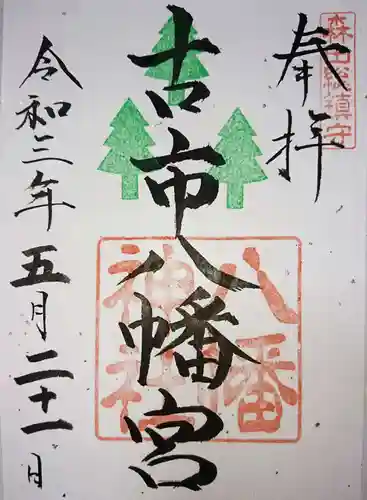 森田総鎮守
奉拝
古市八幡宮
八幡神社
令和三年五月二十一日